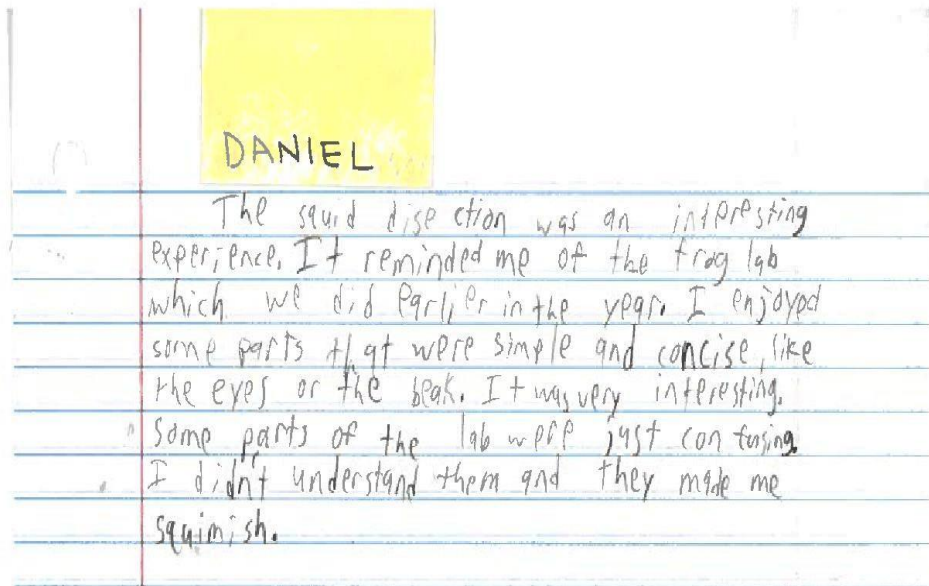 DANIEL
The squid disection was an interesting
experience. It reminded me of the frog lab
which we did earlier in the year. I enjoyed
some parts that were simple and concise, like
the eyes or the beak. It was very interesting.
Some parts of the lab were just confusing.
I didn't understand them and they made me
squimish.